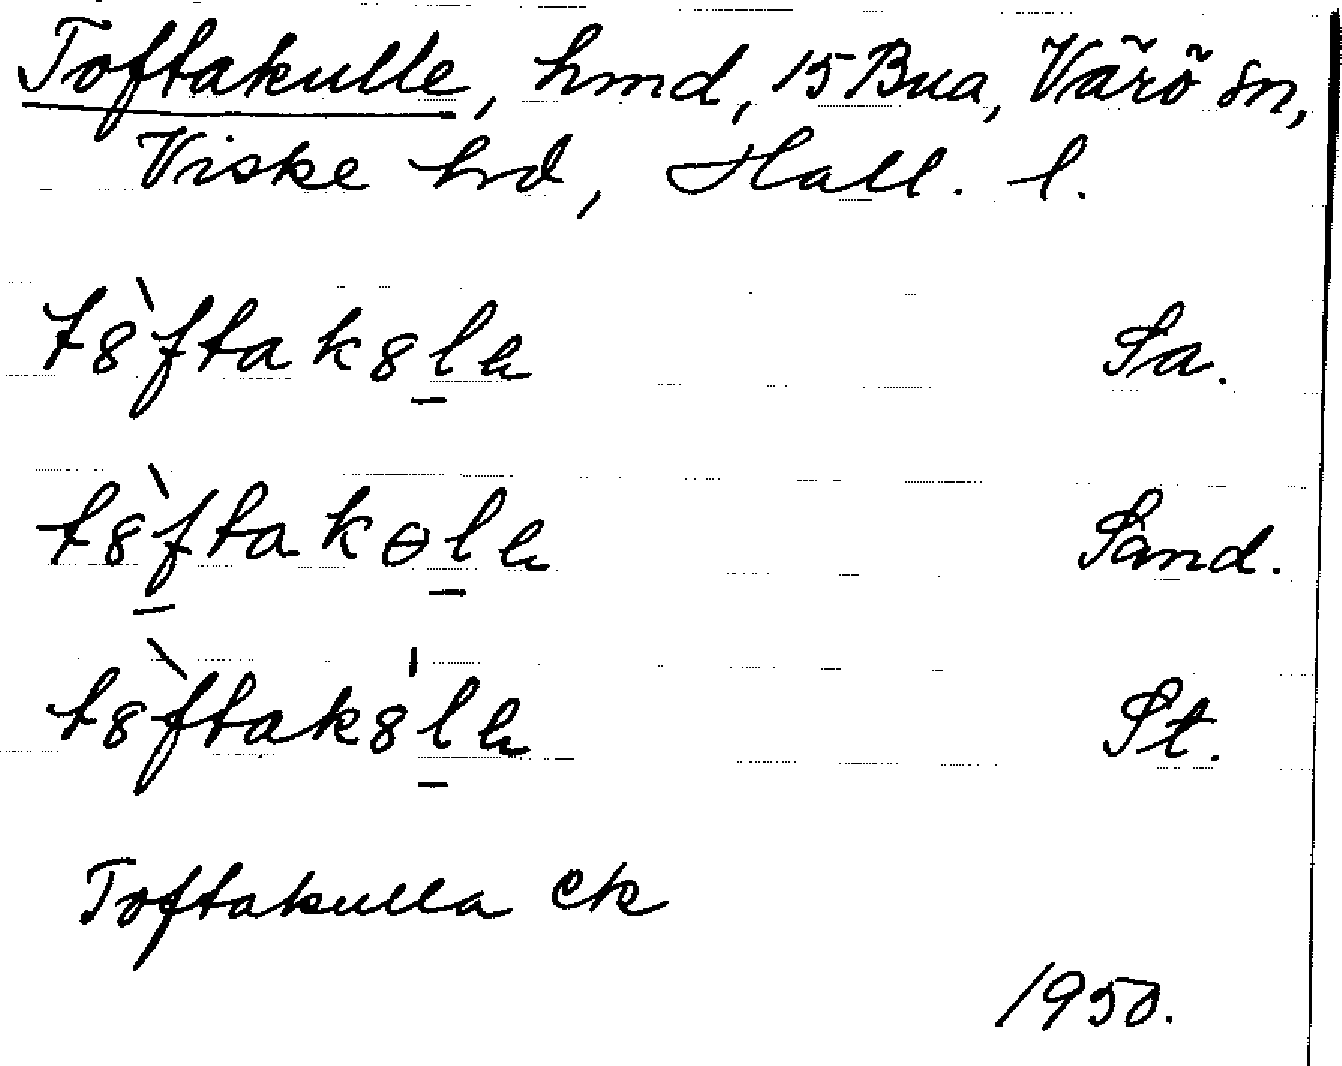 Toftakulle, hmd, 15 Bua, Värö sn,
Viske hrd, Hall. l.
t8̀ftak8lɐ Sa.
t8̀ftakɵlɐ Sand.
t8̀ftak8̍lɐ St.
Toftakulla ek
1950.